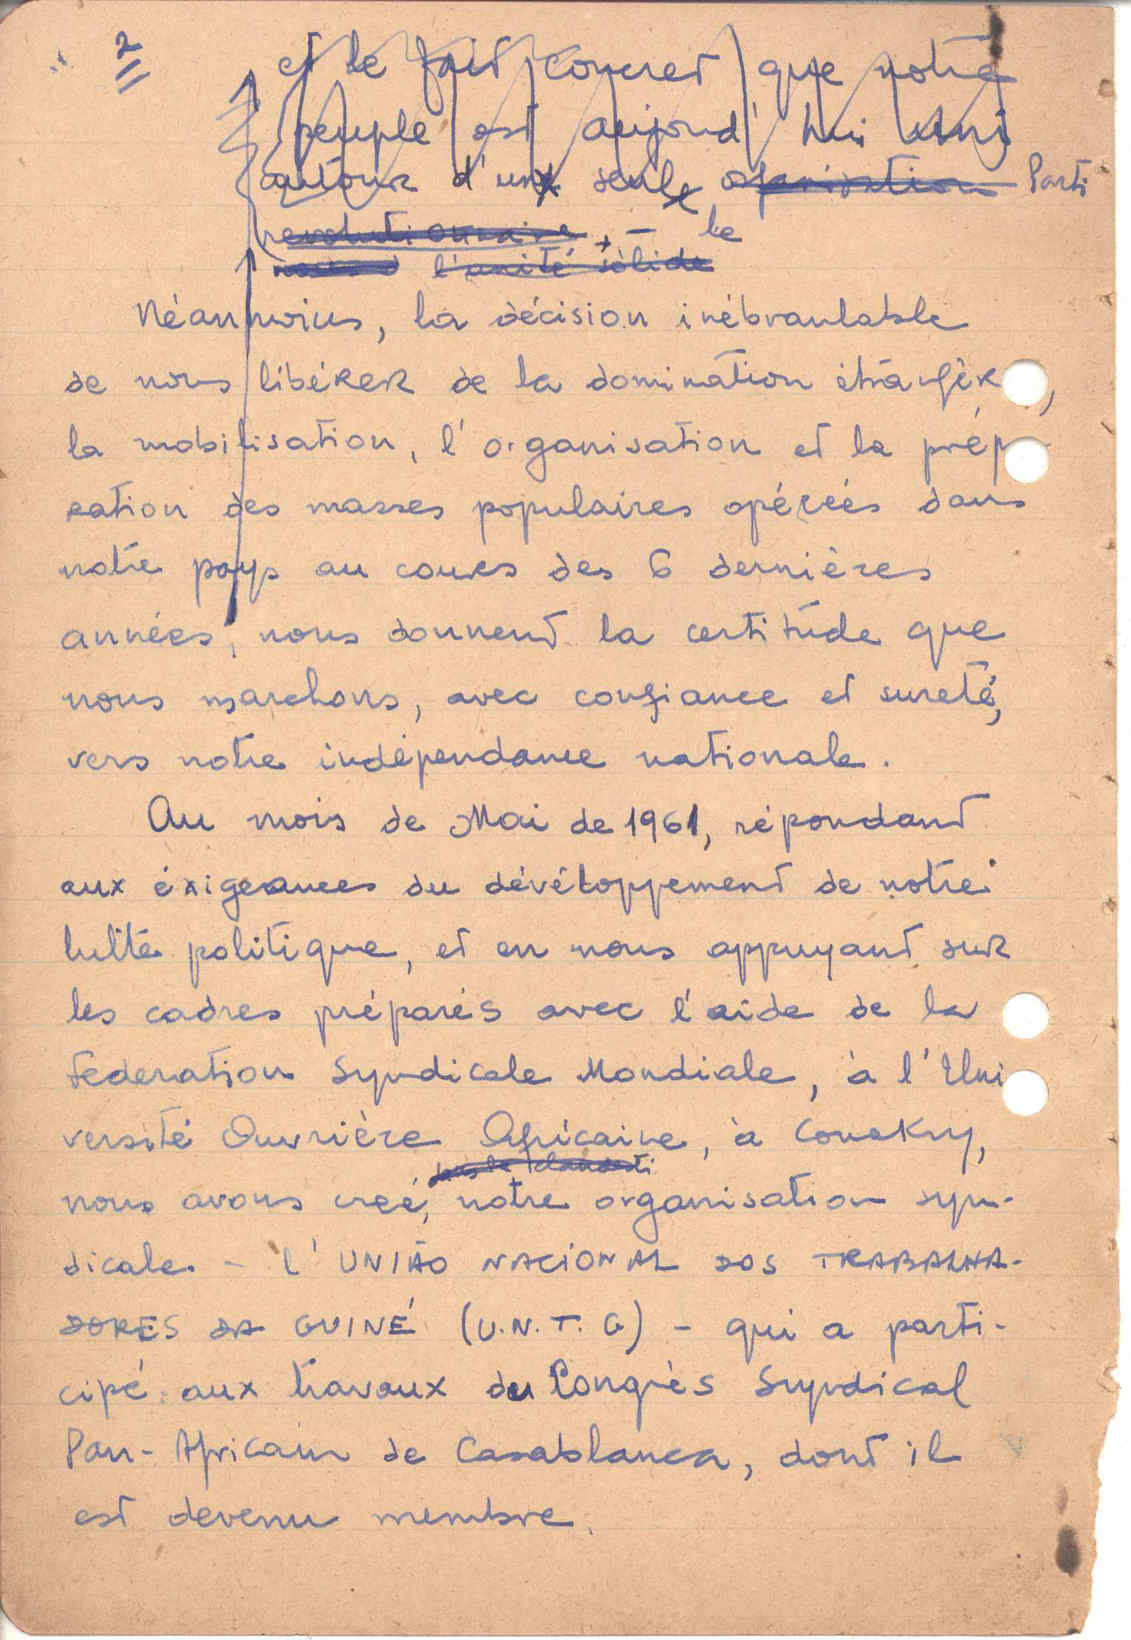 2
et le fait concret que notre
peuple est aujourd'hui uni
autour d'un seul organisation Parti
revolutionnaire, - le
l'unité solide
Néanmoins, la décision inébranlable
de nous libérer de la domination étrangèr ,
la mobilisation, l'organisation et la prép
ration des masses populaires opérées dans
notre pays au cours des 6 dernières
années, nous donnent la certitude que
nous marchons, avec confiance et sureté,
vers notre indépendance nationale.
Au mois de Mai de 1961, répondant
aux éxigeances du dévéloppement de notre
lutte politique, et en nous appuyant sur
les cadres préparés avec l'aide de la
Federation Syndicale Mondiale, à l'Uni
versité Ouvrière Africaine, à Conakry,
dans la clandesti
nous avons creé, notre organisation syn-
dicale - l'UNIÃO NACIONAL DOS TRABALHA-
DORES DA GUINÉ (U.N.T.G) - qui a parti-
cipé aux travaux du Congrès Syndical
Pan-Africain de Casablanca, dont il
est devenu membre.